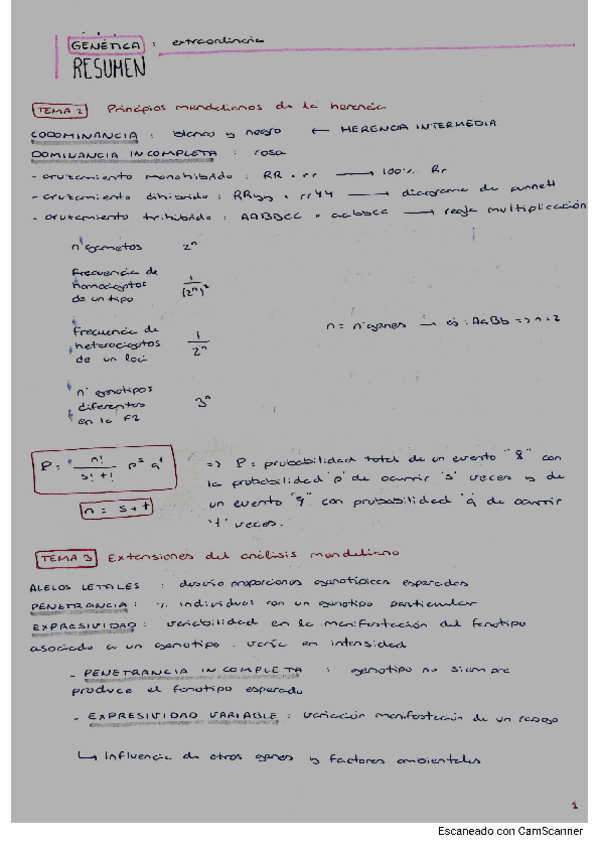 GENÉTICA : extraordinaria
RESUMEN
TEMA 2 Principios mendelianos de la herencia
CODOMINANCIA : blanco y negro ← HERENCIA INTERMEDIA
DOMINANCIA INCOMPLETA : rosa
- cruzamiento monohíbrido : RR × rr → 100% Rr
- cruzamiento dihíbrido : RRyy × rrYY → diagrama de punnett
- cruzamiento trihíbrido : AABBCC × aabbcc → regla multiplicación
nº gametos 2^n
Frecuencia de
homocigotos
de un tipo
1/(2^n)^2
Frecuencia de
heterocigotos
de un loci
1/2^n
n = nº genes → ej : AaBb => n=2
nº genotipos
diferentes
en la F2
3^n
P = n!/(s! t!) p^s q^t
n = s + t
=> P = probabilidad total de un evento "8" con
la probabilidad 'p' de ocurrir 's' veces y de
un evento "9" con probabilidad 'q' de ocurrir
't' veces.
TEMA 3 Extensiones del análisis mendeliano
ALELOS LETALES : desvío proporciones genotípicas esperadas
PENETRANCIA : % individuos con un genotipo particular
EXPRESIVIDAD : variabilidad en la manifestación del fenotipo
asociado a un genotipo. varía en intensidad
- PENETRANCIA INCOMPLETA : genotipo no siempre
produce el fenotipo esperado
- EXPRESIVIDAD VARIABLE : variación manifestación de un rasgo
↳ Influencia de otros genes y factores ambientales
1
Escaneado con CamScanner